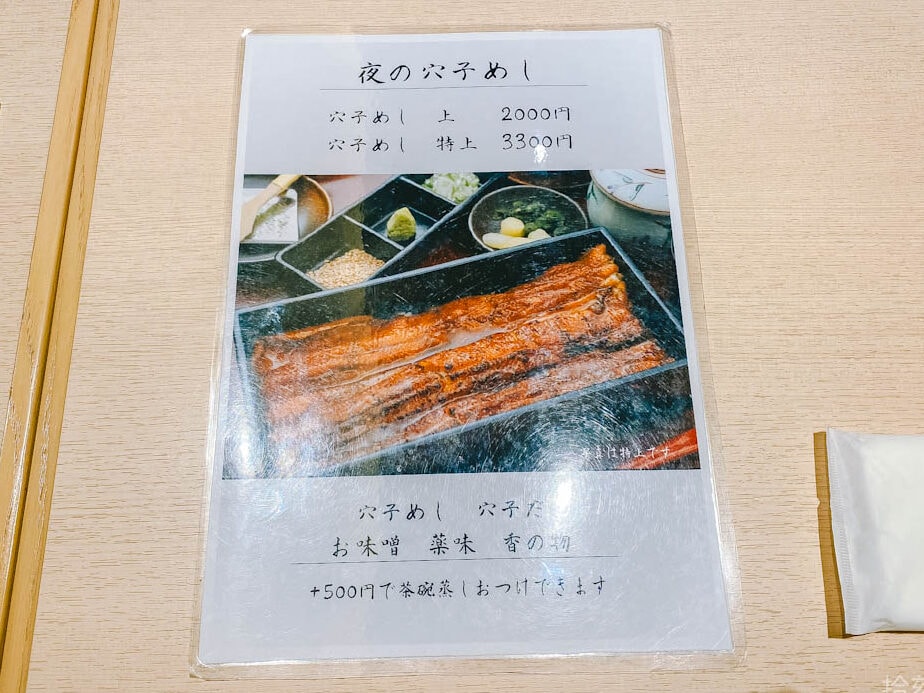 夜の穴子めし
穴子めし 上 2000円
穴子めし 特上 3300円
写真は特上です
穴子めし 穴子だ
お味噌 薬味 香の物
+500円で茶碗蒸しおつけできます